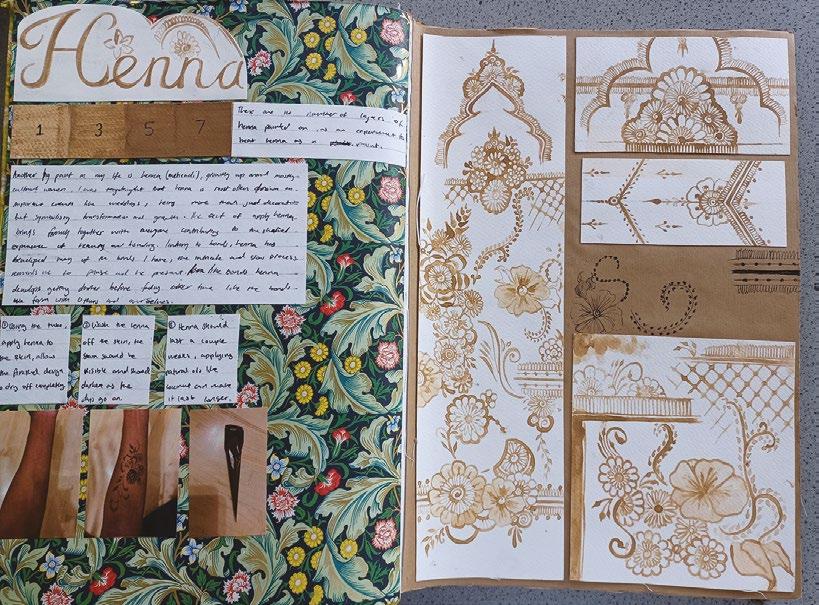 Henna
1 3 5 7
These are the number of layers of
henna painted on, as an experiment to
treat henna as a
Another big point in my life is henna (mehendi), growing up around
women. I was that henna is most often
important events like weddings, being more than just decorative
but symbolising transformation and growth. The act of apply henna
brings family together with everyone contributing to the shared
experience of beauty and bonding. linking to bonds, henna has
developed many of the bonds I have, the intricate and slow process
reminds me to pause and be present. like bonds henna
develops getting darker before fading over time like the bonds
we form with others and ourselves.
① Using the tube,
apply henna to
the skin, allow
the finished design
to dry off completely
② Wash the henna
off the skin, the
stain should be
visible and should
darken as the
days go on.
③ Henna should
last a couple
weeks, applying
natural oils like
coconut can make
it last longer.